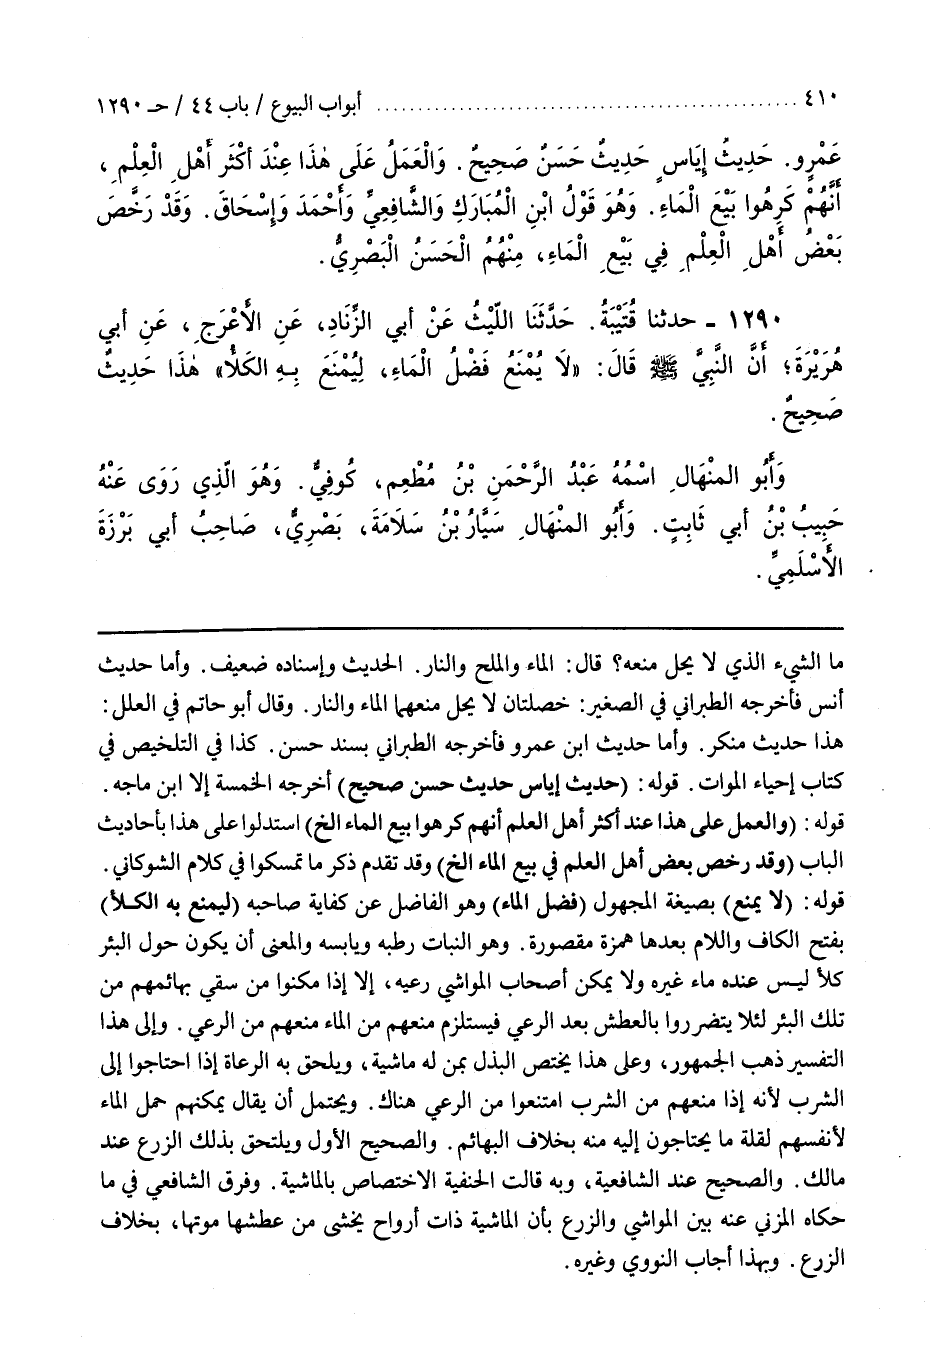 ٤١٠ ........................................................ أبواب البيوع / باب ٤٤ / حـ ١٢٩٠
عَمْرٍو. حَدِيثُ إِيَاسٍ حَدِيثٌ حَسَنٌ صَحِيحٌ. وَالْعَمَلُ عَلَى هٰذَا عِنْدَ أَكْثَرِ أَهْلِ الْعِلْمِ،
أَنَّهُمْ كَرِهُوا بَيْعَ الْمَاءِ. وَهُوَ قَوْلُ ابْنِ الْمُبَارَكِ وَالشَّافِعِيِّ وَأَحْمَدَ وَإِسْحَاقَ. وَقَدْ رَخَّصَ
بَعْضُ أَهْلِ الْعِلْمِ فِي بَيْعِ الْمَاءِ، مِنْهُمُ الْحَسَنُ الْبَصْرِيُّ.
١٢٩٠ - حدثنا قُتَيْبَةُ. حَدَّثَنَا اللَّيْثُ عَنْ أبي الزِّنَادِ، عَنِ الأَعْرَجِ، عَنِ أبي
هُرَيْرَةَ؛ أَنَّ النَّبِيَّ ﷺ قَالَ: «لاَ يُمْنَعُ فَضْلُ الْمَاءِ، لِيُمْنَعَ بِهِ الكَلأُ» هٰذَا حَدِيثٌ
صَحِيحٌ.
وَأَبُو المنْهَالِ اسْمُهُ عَبْدُ الرَّحْمَنِ بْنُ مُطْعِمٍ، كُوفِيٌّ. وَهُوَ الَّذِي رَوَى عَنْهُ
حَبِيبُ بْنُ أبي ثَابِتٍ. وَأَبُو المنْهَالِ سَيَّارُ بْنُ سَلَامَةَ، بَصْرِيٌّ، صَاحِبُ أبي بَرْزَةَ
الأَسْلَمِيِّ.
ما الشيء الذي لا يحل منعه؟ قال: الماء والملح والنار. الحديث وإسناده ضعيف. وأما حديث
أنس فأخرجه الطبراني في الصغير: خصلتان لا يحل منعهما الماء والنار. وقال أبو حاتم في العلل:
هذا حديث منكر. وأما حديث ابن عمرو فأخرجه الطبراني بسند حسن. كذا في التلخيص في
كتاب إحياء الموات. قوله: (حديث إياس حديث حسن صحيح) أخرجه الخمسة إلا ابن ماجه.
قوله: (والعمل على هذا عند أكثر أهل العلم أنهم كرهوا بيع الماء الخ) استدلوا على هذا بأحاديث
الباب (وقد رخص بعض أهل العلم في بيع الماء الخ) وقد تقدم ذكر ما تمسكوا في كلام الشوكاني.
قوله: (لا يمنع) بصيغة المجهول (فضل الماء) وهو الفاضل عن كفاية صاحبه (ليمنع به الكلأ)
بفتح الكاف واللام بعدها همزة مقصورة. وهو النبات رطبه ويابسه والمعنى أن يكون حول البئر
كلأ ليس عنده ماء غيره ولا يمكن أصحاب المواشي رعيه، إلا إذا مكنوا من سقي بهائمهم من
تلك البئر لئلا يتضرروا بالعطش بعد الرعي فيستلزم منعهم من الماء منعهم من الرعي. وإلى هذا
التفسير ذهب الجمهور، وعلى هذا يختص البذل بمن له ماشية، ويلحق به الرعاة إذا احتاجوا إلى
الشرب لأنه إذا منعهم من الشرب امتنعوا من الرعي هناك. ويحتمل أن يقال يمكنهم حمل الماء
لأنفسهم لقلة ما يحتاجون إليه منه بخلاف البهائم. والصحيح الأول ويلتحق بذلك الزرع عند
مالك. والصحيح عند الشافعية، وبه قالت الحنفية الاختصاص بالماشية. وفرق الشافعي في ما
حكاه المزني عنه بين المواشي والزرع بأن الماشية ذات أرواح يخشى من عطشها موتها، بخلاف
الزرع. وبهذا أجاب النووي وغيره.